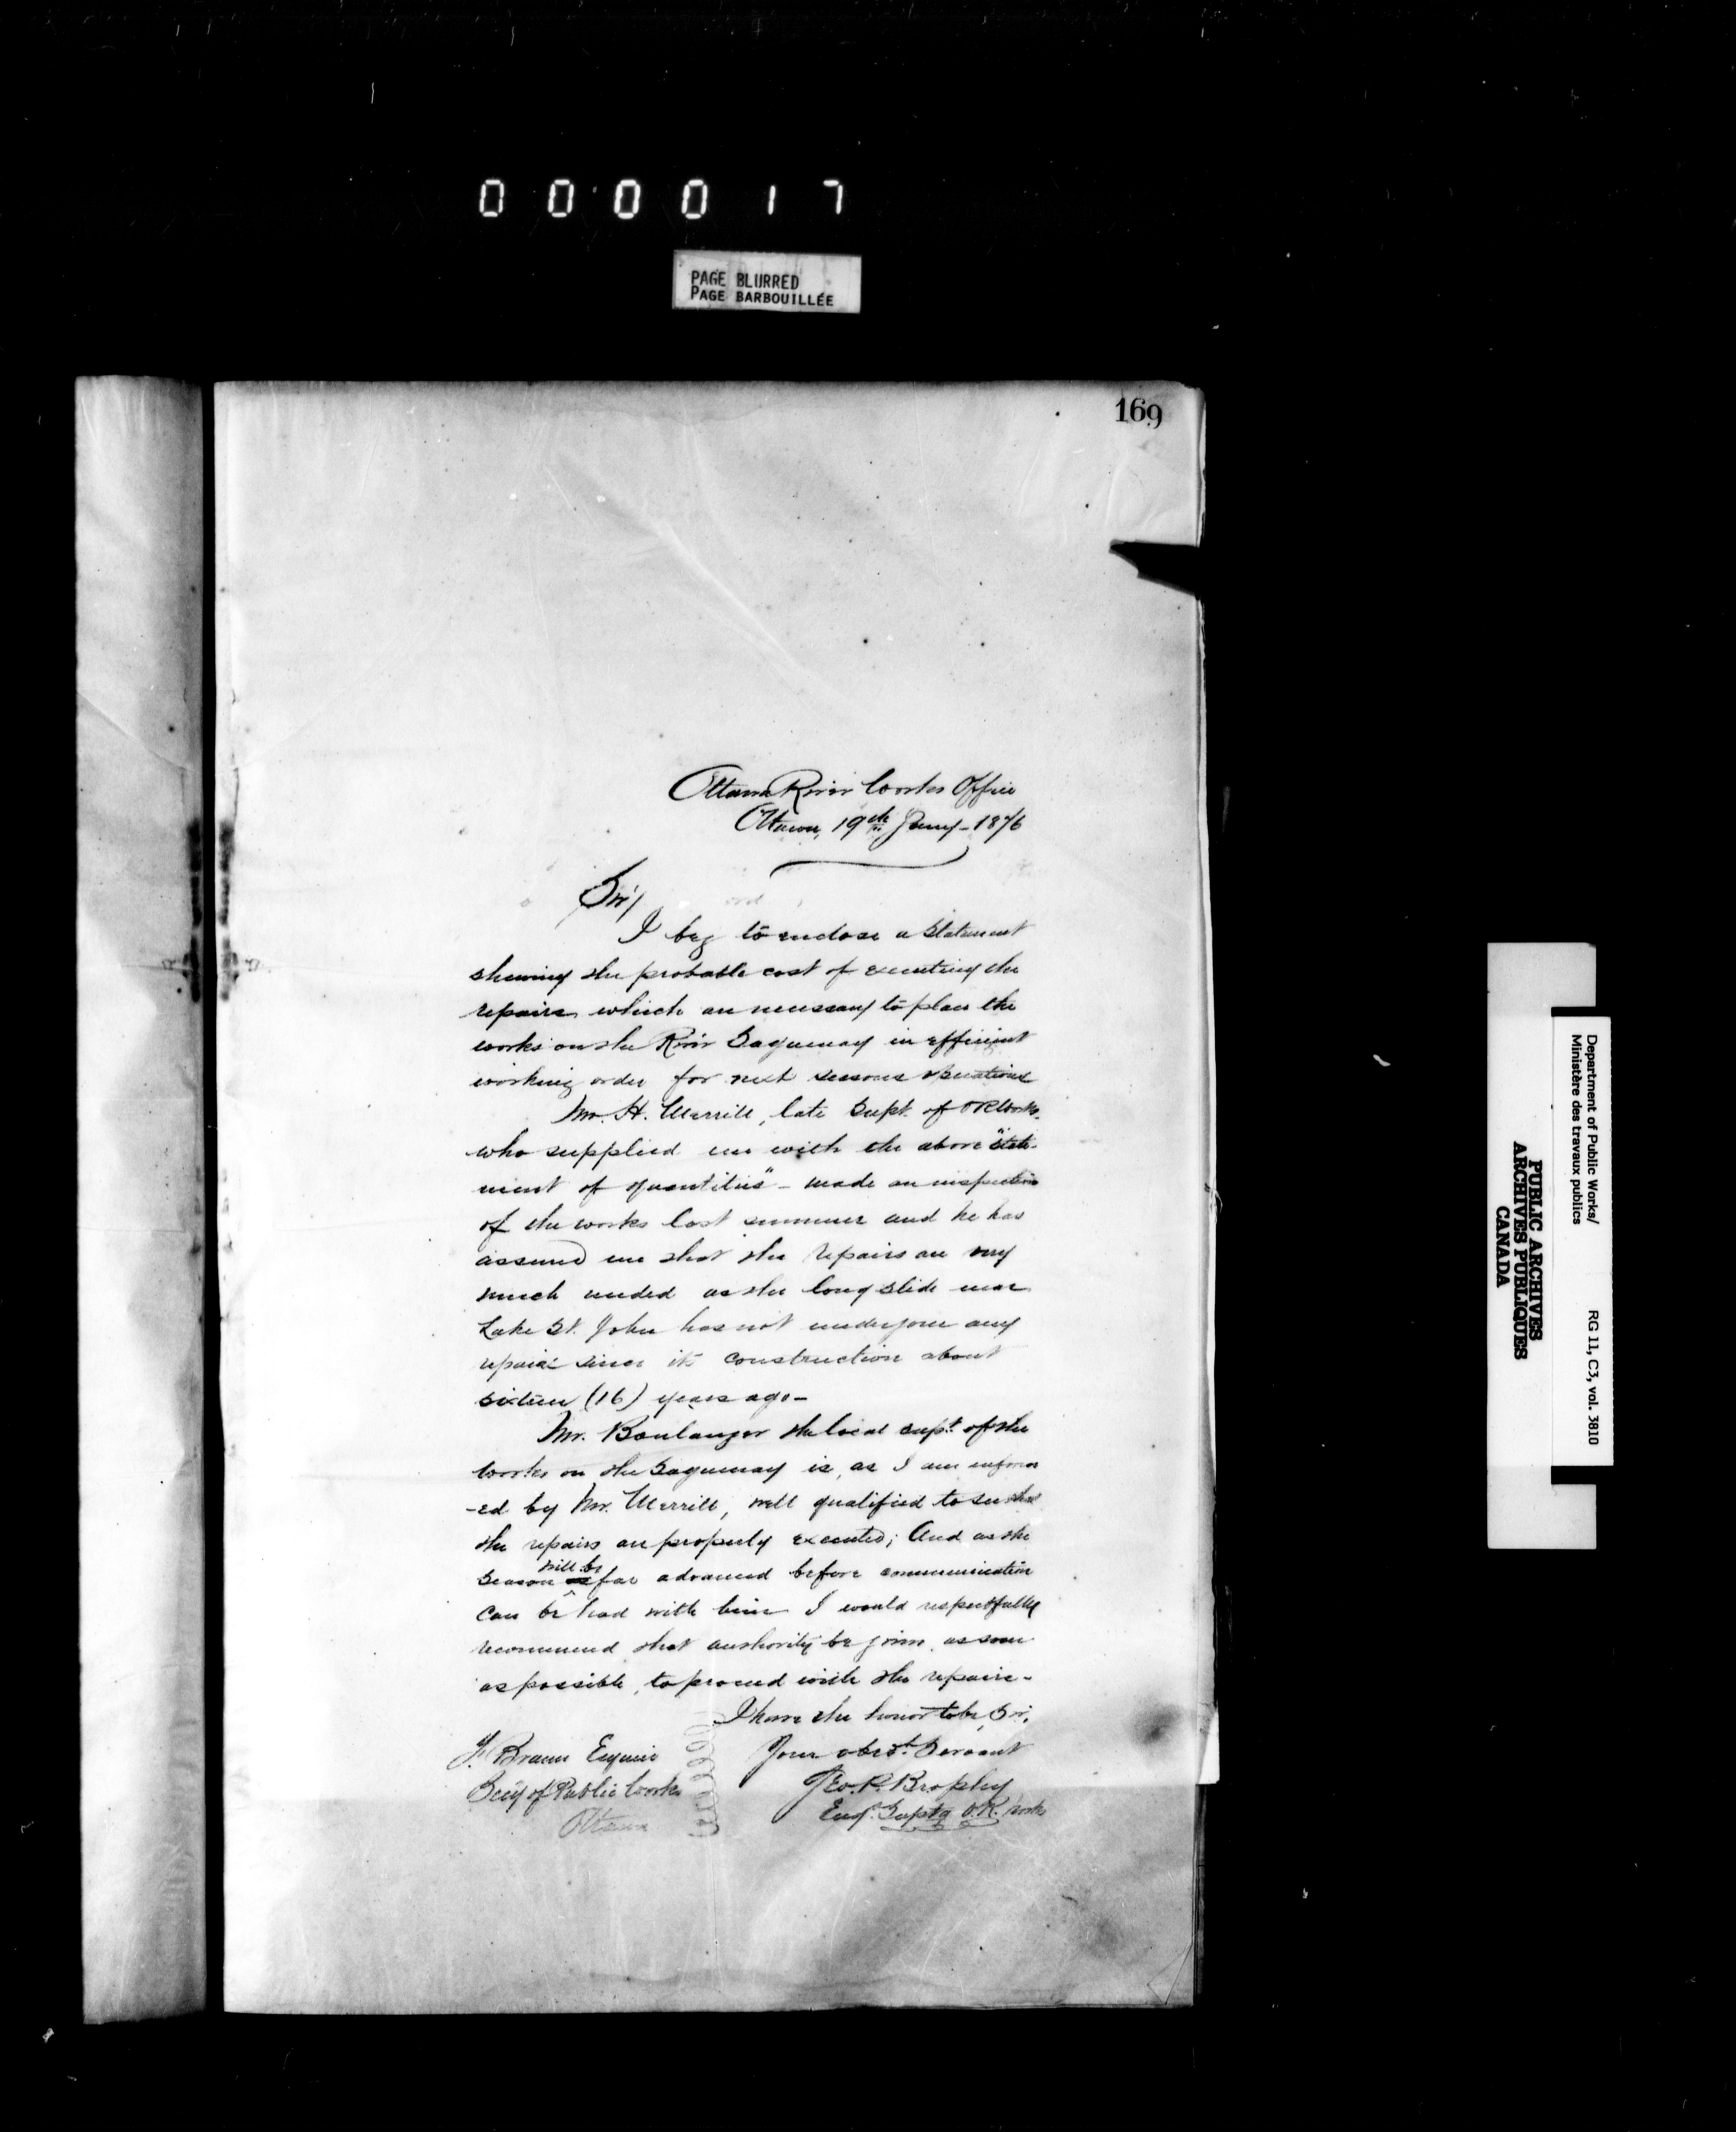 0 0 0 0 1 7
PAGE BLURRED
PAGE BARBOUILLÉE
169
Ottawa River Works Office
Ottawa, 19th Jany - 1876
Sir/
I beg to enclose a Statement
shewing the probable cost of executing the
repairs which are necessary to place the
works on the River Saguenay in efficient
working order for next seasons operations
Mr. H. Merrill, late Supt. of O R Works.
who supplied me with the above "state-
ment of quantities" - made an inspection
of the works last summer and he has
assured me that the repairs are very
much needed as the long slide near
Lake St. John has not undergone any
repairs since its construction about
sixteen (16) years ago -
Mr. Boulanger the local supt. of the
works on the Saguenay is, as I am inform
-ed by Mr. Merrill, well qualified to see that
the repairs are properly executed; And as the
season will be far advanced before communication
can be had with him I would respectfully
recommend that authority be given, as soon
as possible, to proceed with the repairs -
I have the honor to be, Sir,
Your obedt. Servant
Geo. P. Brophy
Engr. Suptg O. R. Works
F. Braun Esquire
Secy of Public Works
Ottawa
Department of Public Works/
Ministère des travaux publics
RG 11, C3, vol. 3810
PUBLIC ARCHIVES
ARCHIVES PUBLIQUES
CANADA